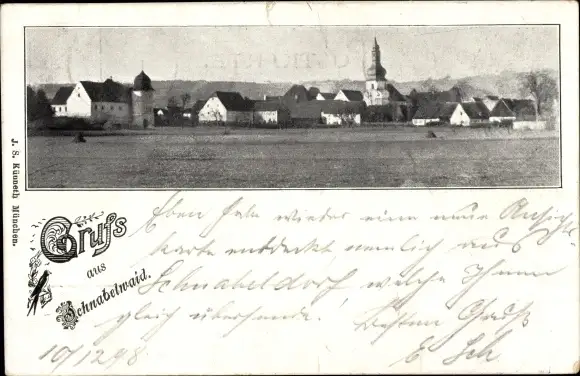 J. S. Künneth München.
Gruß
aus
Schnabelwaid.
Eben habe wieder eine neue Ansichts
karte entdeckt, nemlich aus
Schnabeldorf welche Ihnen
gleich übersende! Besten Gruß
10/12 98
E Sch